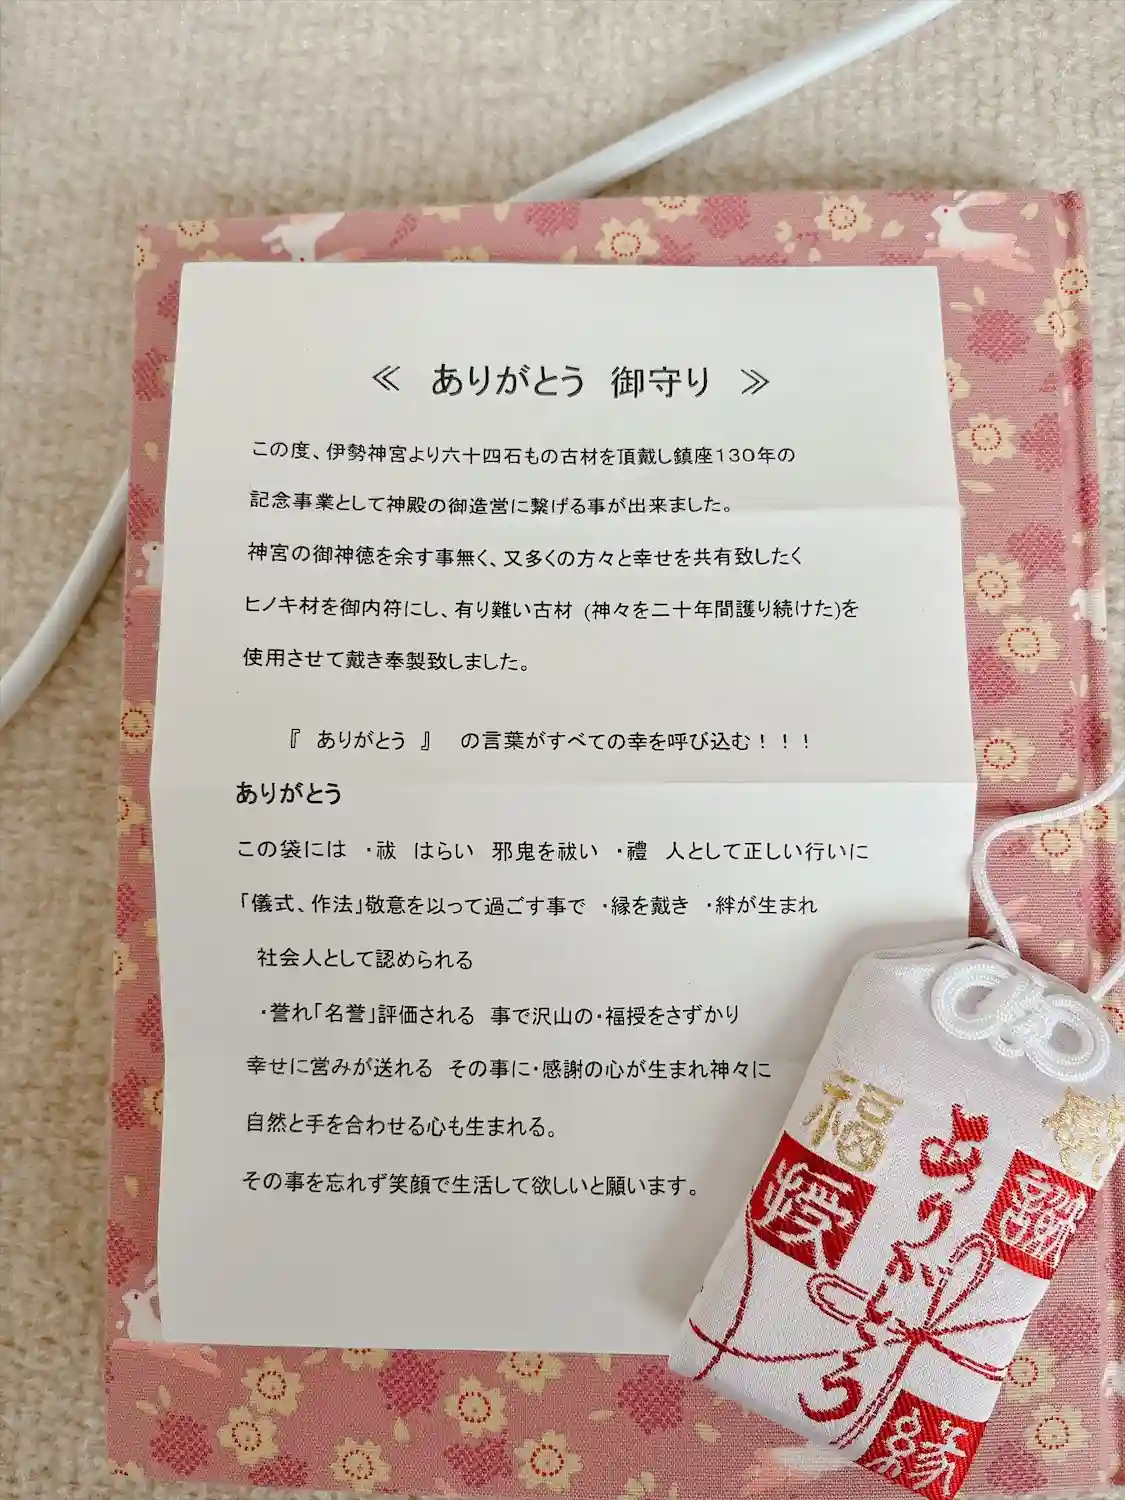 ≪ ありがとう 御守り ≫
この度、伊勢神宮より六十四石もの古材を頂戴し鎮座130年の
記念事業として神殿の御造営に繋げる事が出来ました。
神宮の御神徳を余す事無く、又多くの方々と幸せを共有致したく
ヒノキ材を御内符にし、有り難い古材 (神々を二十年間護り続けた)を
使用させて戴き奉製致しました。
『 ありがとう 』 の言葉がすべての幸を呼び込む！！！
ありがとう
この袋には ・祓 はらい 邪鬼を祓い ・禮 人として正しい行いに
「儀式、作法」敬意を以って過ごす事で ・縁を戴き ・絆が生まれ
社会人として認められる
・誉れ「名誉」評価される 事で沢山の・福授をさずかり
幸せに営みが送れる その事に・感謝の心が生まれ神々に
自然と手を合わせる心も生まれる。
その事を忘れず笑顔で生活して欲しいと願います。
福
授
ありがとう
縁